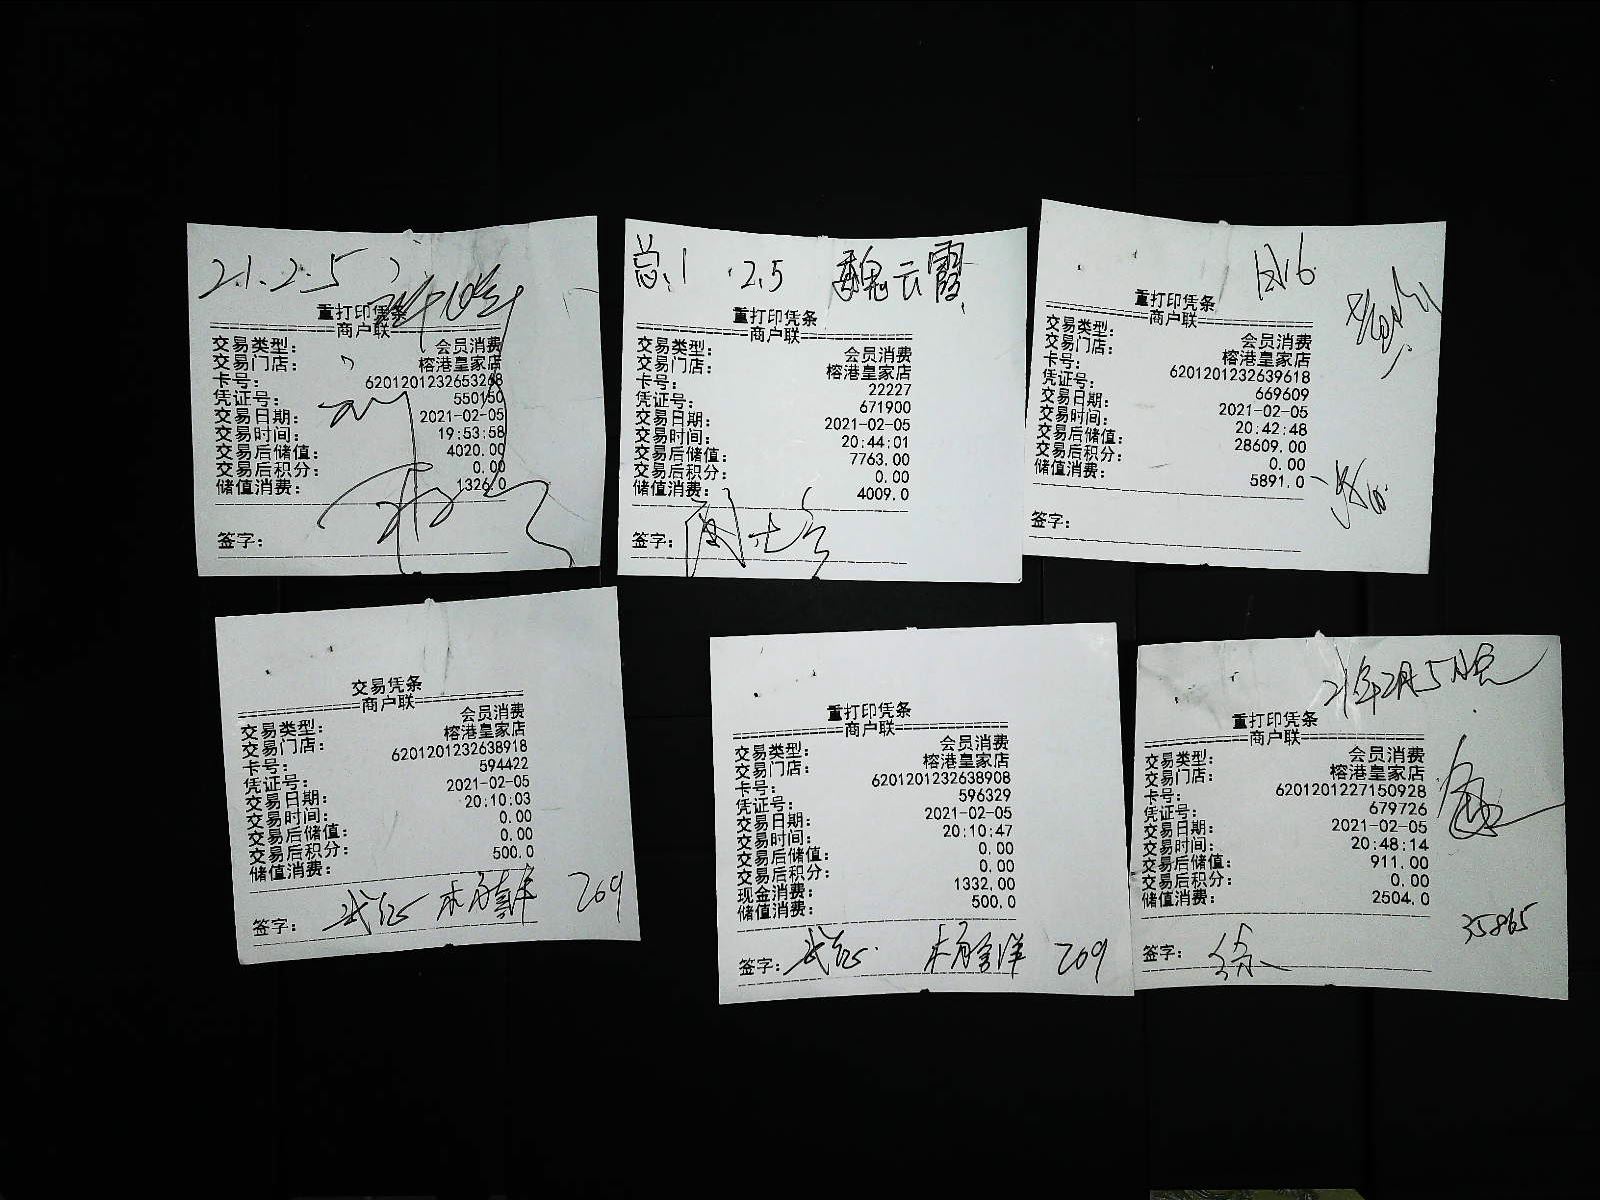 21.2.5
重打印凭条
商户联
交易类型： 会员消费
交易门店： 榕港皇家店
卡号： 6201201232653268
凭证号： 550150
交易日期： 2021-02-05
交易时间： 19:53:58
交易后储值： 4020.00
交易后积分： 0.00
储值消费： 1326.0
签字：
总.1 2.5 魏云霞
重打印凭条
商户联
交易类型： 会员消费
交易门店： 榕港皇家店
卡号： 22227
凭证号： 671900
交易日期： 2021-02-05
交易时间： 20:44:01
交易后储值： 7763.00
交易后积分： 0.00
储值消费： 4009.0
签字：
重打印凭条
商户联
交易类型： 会员消费
交易门店： 榕港皇家店
卡号： 6201201232639618
凭证号： 669609
交易日期： 2021-02-05
交易时间： 20:42:48
交易后储值： 28609.00
交易后积分： 0.00
储值消费： 5891.0
签字：
交易凭条
商户联
交易类型： 会员消费
交易门店： 榕港皇家店
卡号： 6201201232638918
凭证号： 594422
交易日期： 2021-02-05
交易时间： 20:10:03
交易后储值： 0.00
交易后积分： 0.00
储值消费： 500.0
签字： 269
重打印凭条
商户联
交易类型： 会员消费
交易门店： 榕港皇家店
卡号： 6201201232638908
凭证号： 596329
交易日期： 2021-02-05
交易时间： 20:10:47
交易后储值： 0.00
交易后积分： 0.00
现金消费： 1332.00
储值消费： 500.0
签字： 269
21年2月5日
重打印凭条
商户联
交易类型： 会员消费
交易门店： 榕港皇家店
卡号： 6201201227150928
凭证号： 679726
交易日期： 2021-02-05
交易时间： 20:48:14
交易后储值： 911.00
交易后积分： 0.00
储值消费： 2504.0
35865
签字： 徐